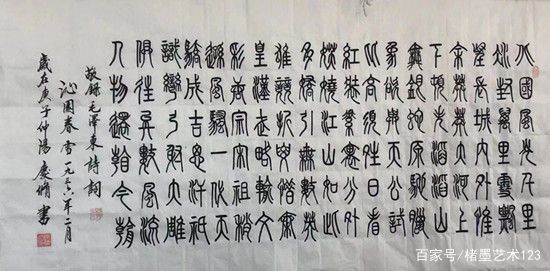 北國風光千里
冰封萬里雪飄
望長城内外惟
余莽莽大河上
下頓失滔滔山
舞銀蛇原馳蠟
象欲與天公試
比高須晴日看
紅裝素裹分外
妖嬈江山如此
多嬌引無數英
雄競折腰惜秦
皇漢武略輸文
采唐宗宋祖稍
遜風騷一代天
驕成吉思汗祇
識彎弓射大雕
俱往矣數風流
人物還看今朝
敬錄毛澤東詩詞
沁園春雪一九三六年二月
歲在庚子仲陽慶 書
百家号/楮墨艺术123